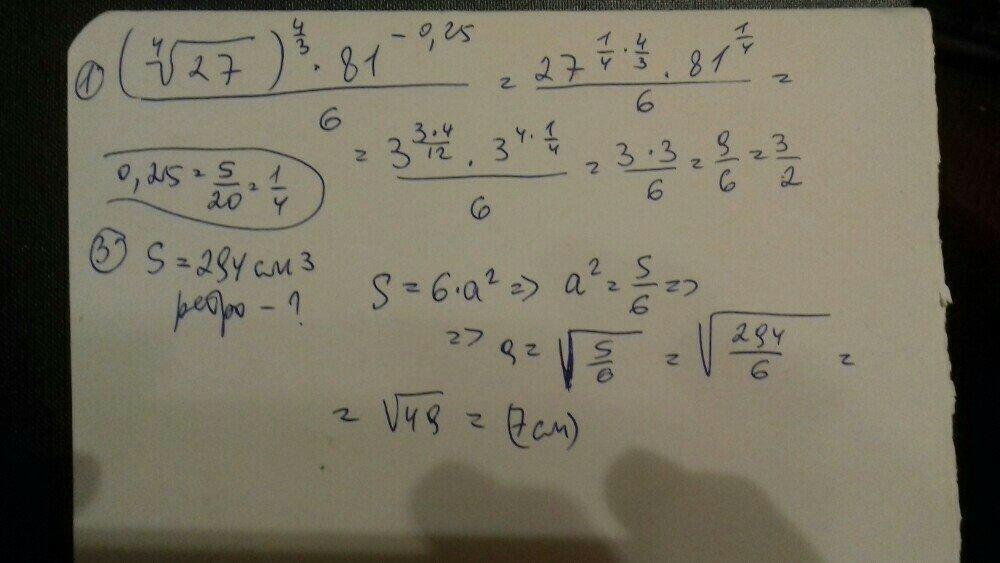 ① (⁴√27)^(4/3) · 81^(-0,25) / 6 = 27^(1/4 · 4/3) · 81^(1/4) / 6 =
= 3^(3·4/12) · 3^(4·1/4) / 6 = 3·3/6 = 9/6 = 3/2
0,25 = 5/20 = 1/4
③ S = 294 см 3
ребро - ?
S = 6·a² => a² = S/6 =>
=> a = √(S/6) = √(294/6) =
= √49 = (7 см)